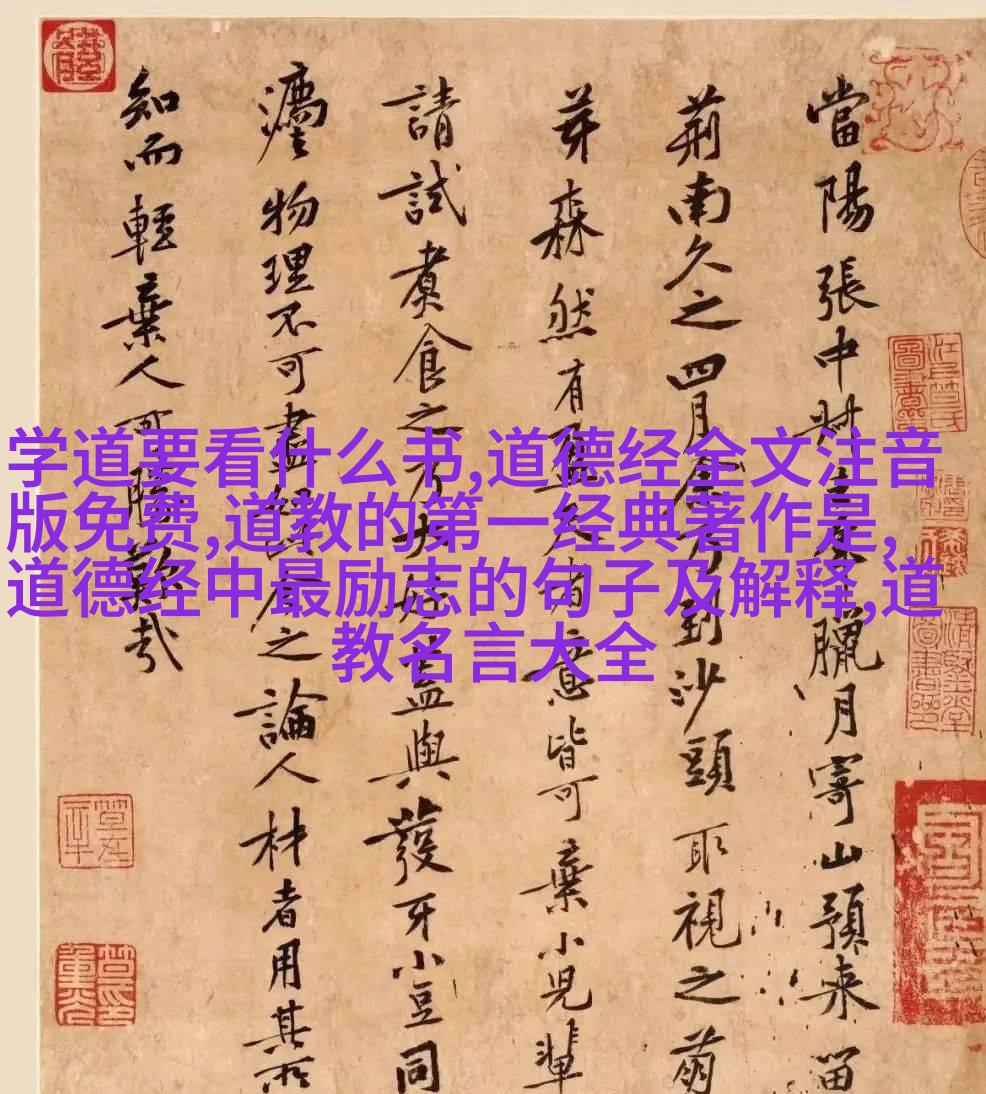 学道要看什么书,道德经全文注音
版免费,道教的第一经典著作是,
道德经中最励志的句子及解释,道
教名言大全
當陽張中叔臘月寄山預來留
荊南久之四月到沙頭取視之萌
芽森然有意皆可棄小兒輩
請試煮食之乃大好蓋與發牙小豆同
灋物理不可盡之論人材者用其所
知而輕棄人可勝歎哉